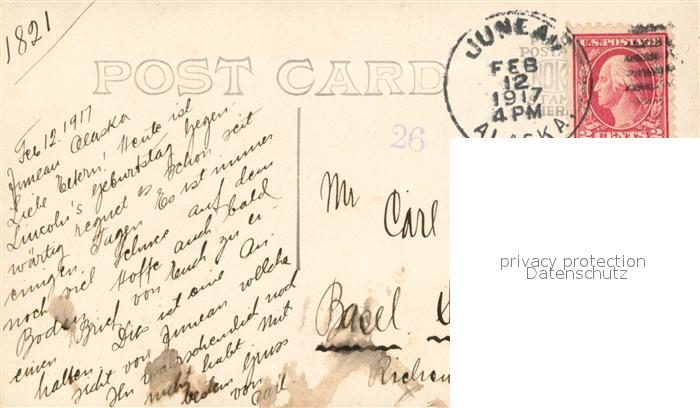 1821
POST CARD
JUNEAU
FEB
12
1917
4 PM
ALASKA.
U.S. POSTAGE
2 CENTS 2
26
Feb 12. 1917
Juneau Alaska
Liebe Eltern! Heute ist
Lincoln's geburtstag. Gegen-
wärtig regnet es schon seit
einigen Tagen. Es ist immer
noch viel Schnee auf dem
Boden. Hoffe auch bald
einen Brief von Euch zu er-
halten. Dies ist eine An-
sicht von Juneau welche
Ihr wahrscheinlich noch
nicht habt. Mit
besten Gruss
von
Mr Carl
Basel.
privacy protection
Datenschutz